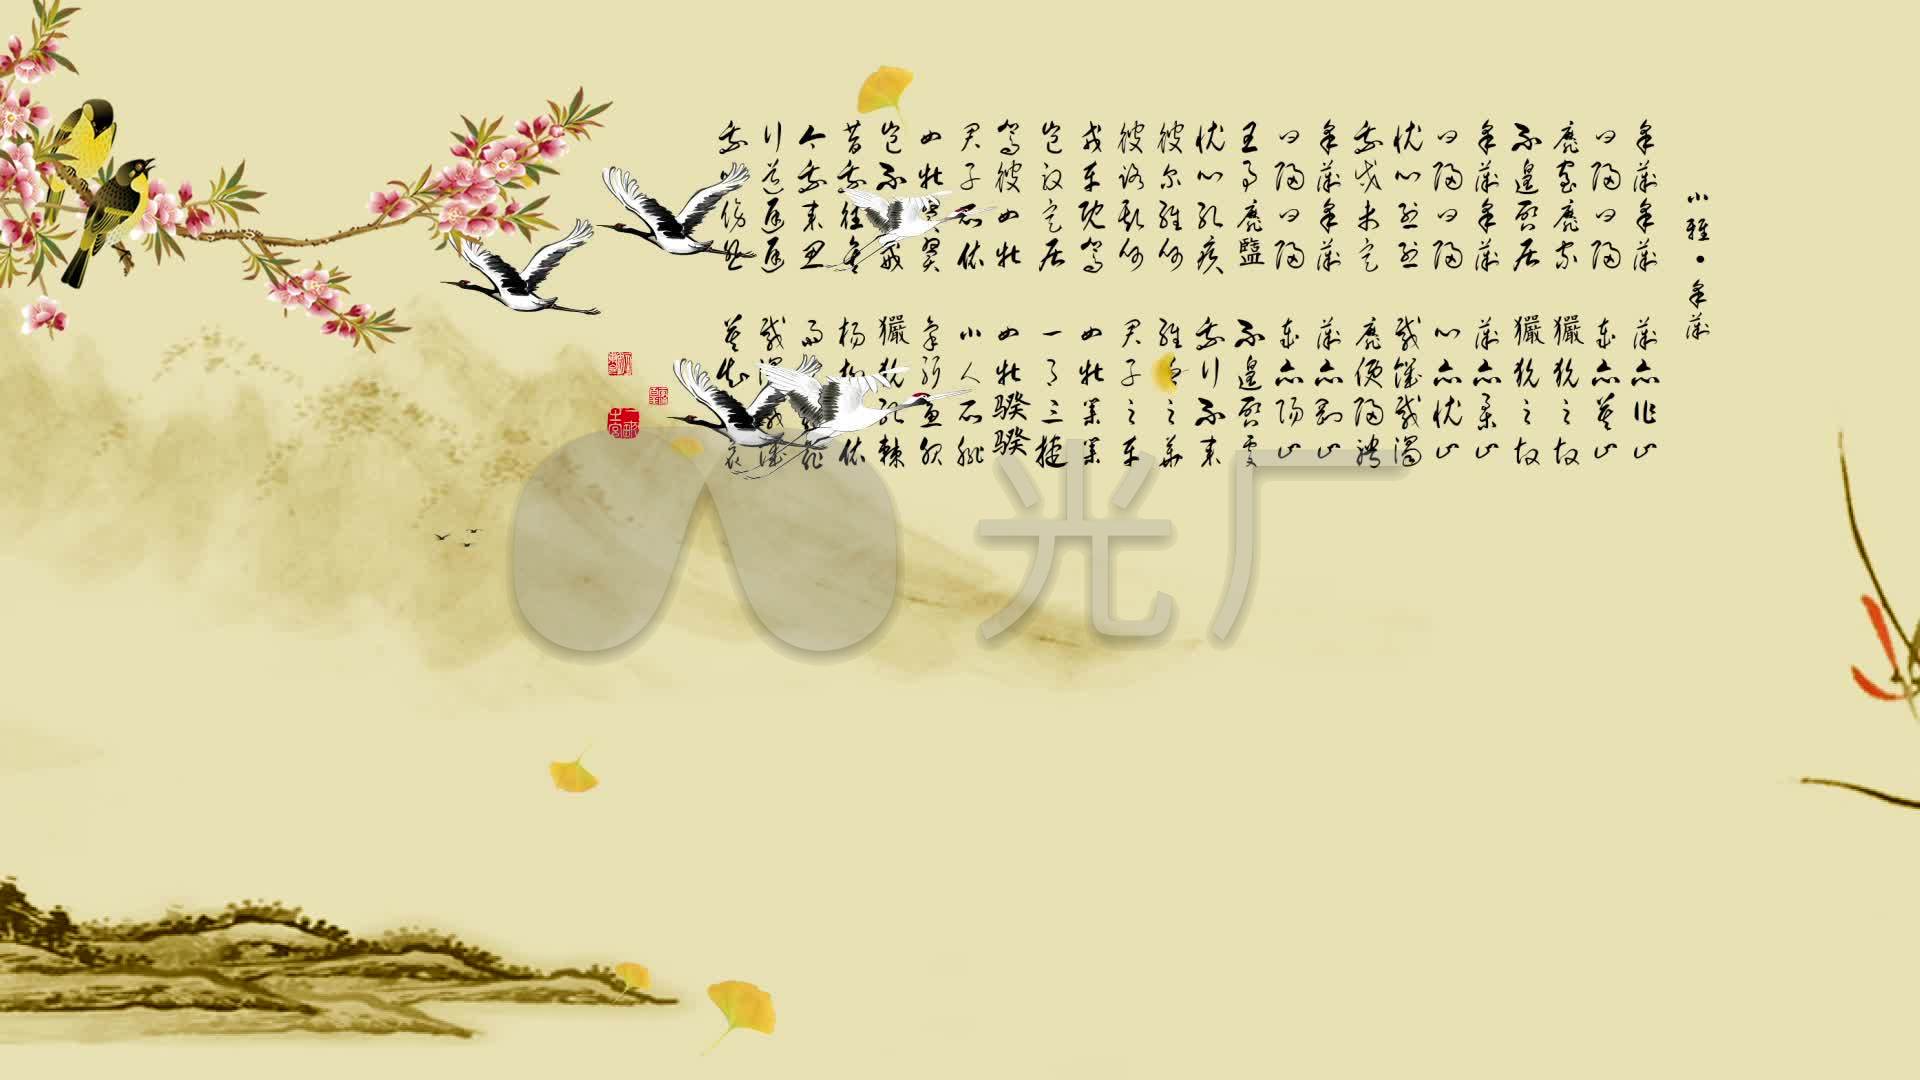 小雅·采薇
采薇采薇 薇亦作止
曰归曰归 岁亦莫止
靡室靡家 玁狁之故
不遑启居 玁狁之故
采薇采薇 薇亦柔止
曰归曰归 心亦忧止
忧心烈烈 载饥载渴
我戍未定 靡使归聘
采薇采薇 薇亦刚止
曰归曰归 岁亦阳止
王事靡盬 不遑启处
忧心孔疚 我行不来
彼尔维何 维之华
彼路斯何 君子之车
戎车既驾 四牡业业
岂敢定居 一月三捷
驾彼四牡 四牡騤騤
君子所依 小人所腓
四牡翼翼 象弭鱼服
岂不戒 玁狁孔棘
昔我往矣 杨柳依
今我来思 雨霏
行道迟迟 载渴载饥
我伤悲 莫知哀
光厂